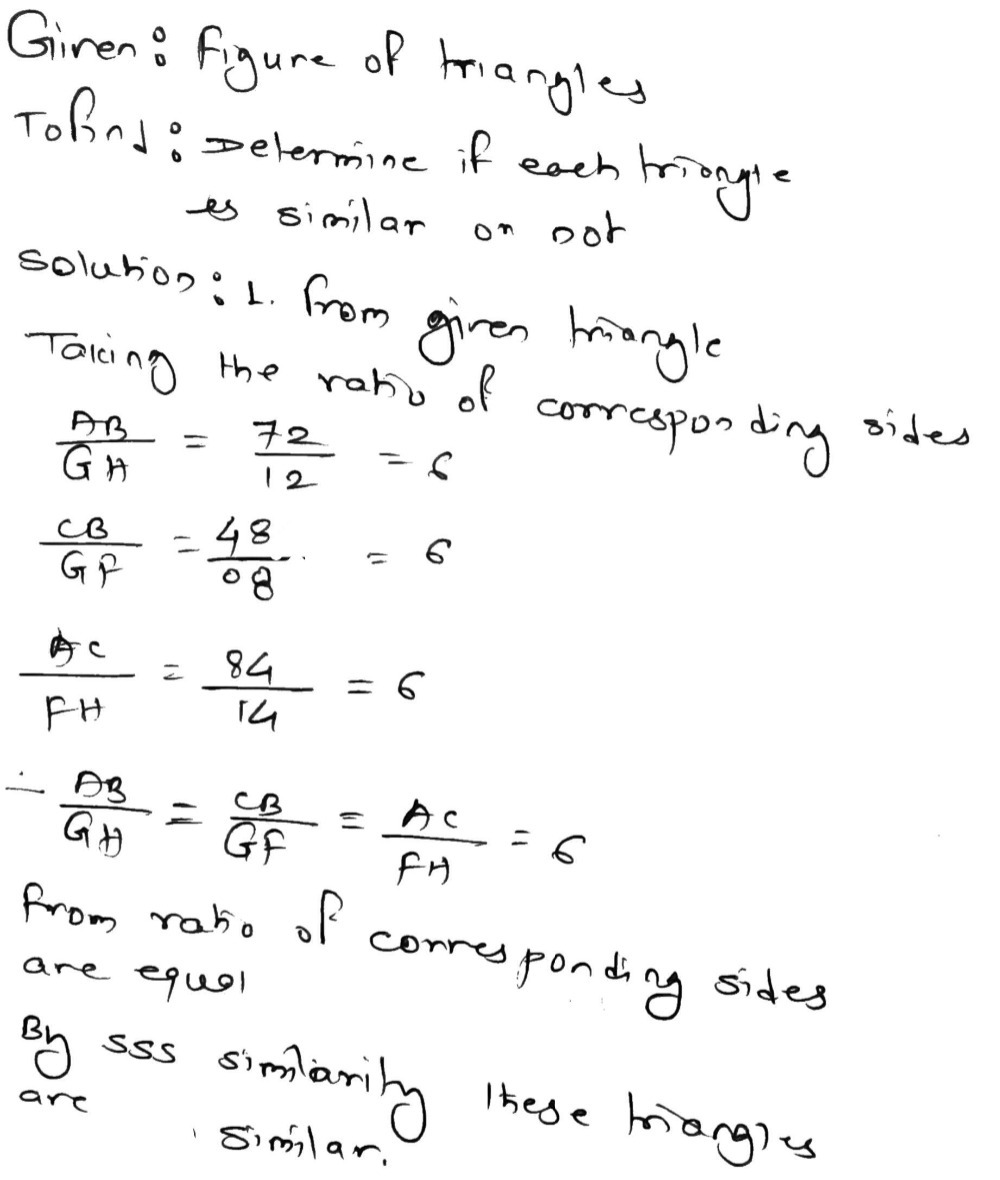 Given: figure of triangles
To find: Determine if each triangle
is similar or not
Solution: 1. from given triangle
Taking the ratio of corresponding sides
AB/GH = 72/12 = 6
CB/GF = 48/08 = 6
AC/FH = 84/14 = 6
∴ AB/GH = CB/GF = AC/FH = 6
from ratio of corresponding sides
are equal
By SSS similarity these triangles
are similar.